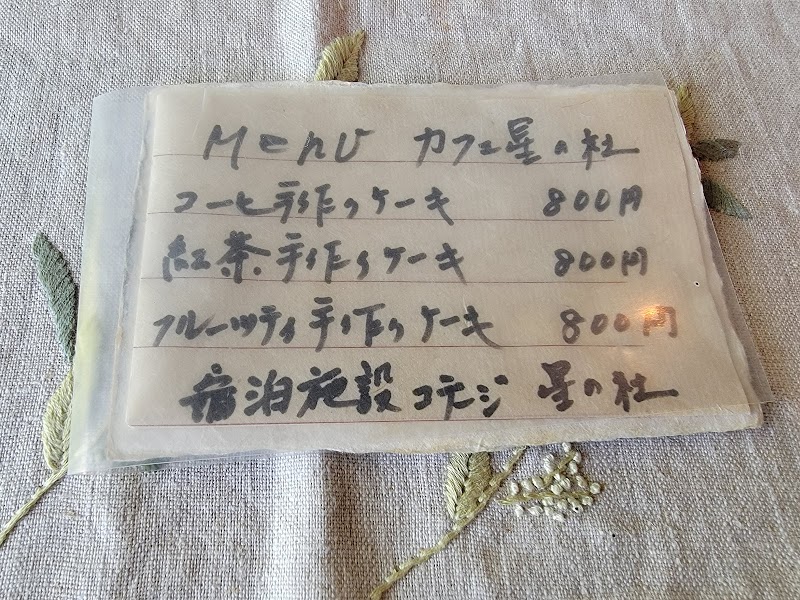 Menu カフェ星の杜
コーヒ手作りケーキ 800円
紅茶手作りケーキ 800円
フルーツティ手作りケーキ 800円
宿泊施設コテージ 星の杜